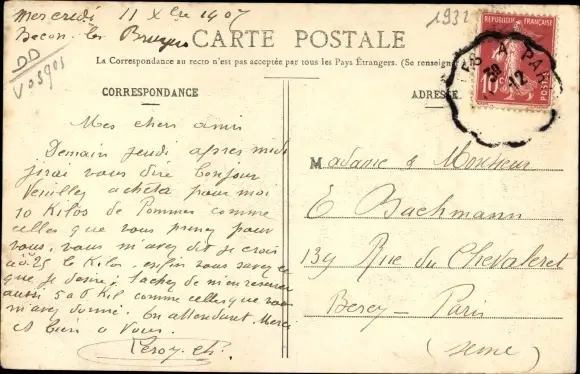 Mercredi 11 Xbre 1907
Becon les Bruyeres
DD
Vosges
1932
CARTE POSTALE
La Correspondance au recto n'est pas acceptée par tous les Pays Étrangers. (Se renseigner
CORRESPONDANCE
ADRESSE
RÉPUBLIQUE FRANÇAISE
10c
POSTES
A PAR
12
Mes chers amis
Demain jeudi apres midi
jirai vous dire bonjour
Veuillez acheter pour moi
10 Kilos de Pommes comme
celles que vous prenez pour
vous, vous m'avez dit je crois
à 0.25 le Kilo, enfin vous savez ce
que je desire, tachez de m'en reserver
aussi 5 a 6 Kil. comme celles que vous
m'avez donné. En attendant Merci
et bien a Vous.
Leroy
Madame & Monsieur
E Bachmann
139 Rue du Chevaleret
Bercy - Paris
(Seine)